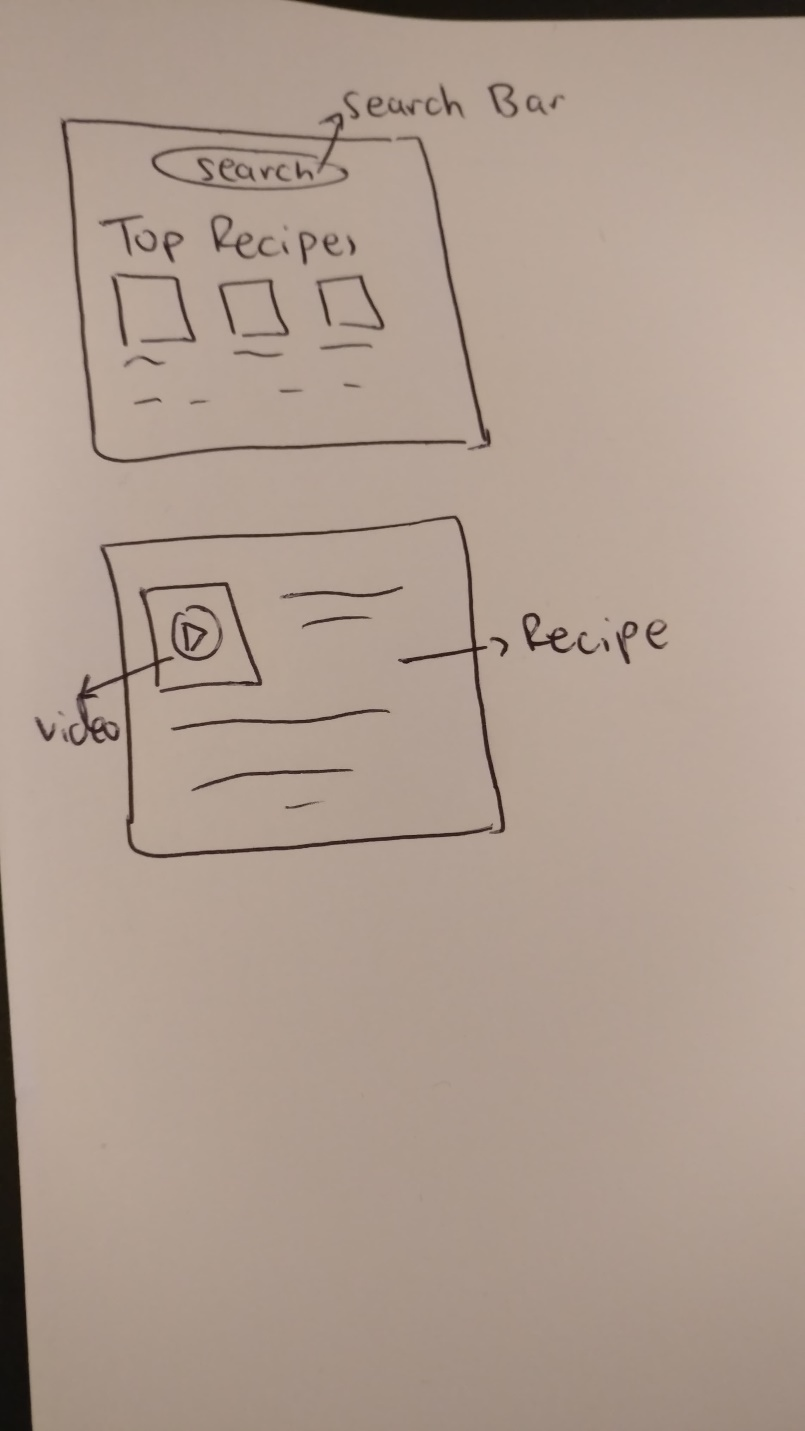 Search Bar
search
Top Recipes
Recipe
video